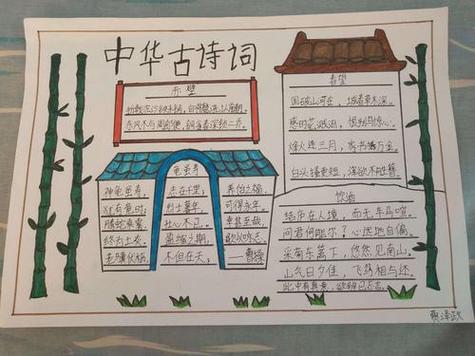 中华古诗词
赤壁
折戟沉沙铁未销，自将磨洗认前朝。
东风不与周郎便，铜雀春深锁二乔。
春望
国破山河在，城春草木深。
感时花溅泪，恨别鸟惊心。
烽火连三月，家书抵万金。
白头搔更短，浑欲不胜簪。
龟虽寿
神龟虽寿，
犹有竟时。
腾蛇乘雾，
终为土灰。
老骥伏枥，
志在千里。
烈士暮年，
壮心不已。
盈缩之期，
不但在天；
养怡之福，
可得永年。
幸甚至哉，
歌以咏志。
——曹操
饮酒
结庐在人境，而无车马喧。
问君何能尔？心远地自偏。
采菊东篱下，悠然见南山。
山气日夕佳，飞鸟相与还。
此中有真意，欲辨已忘言。